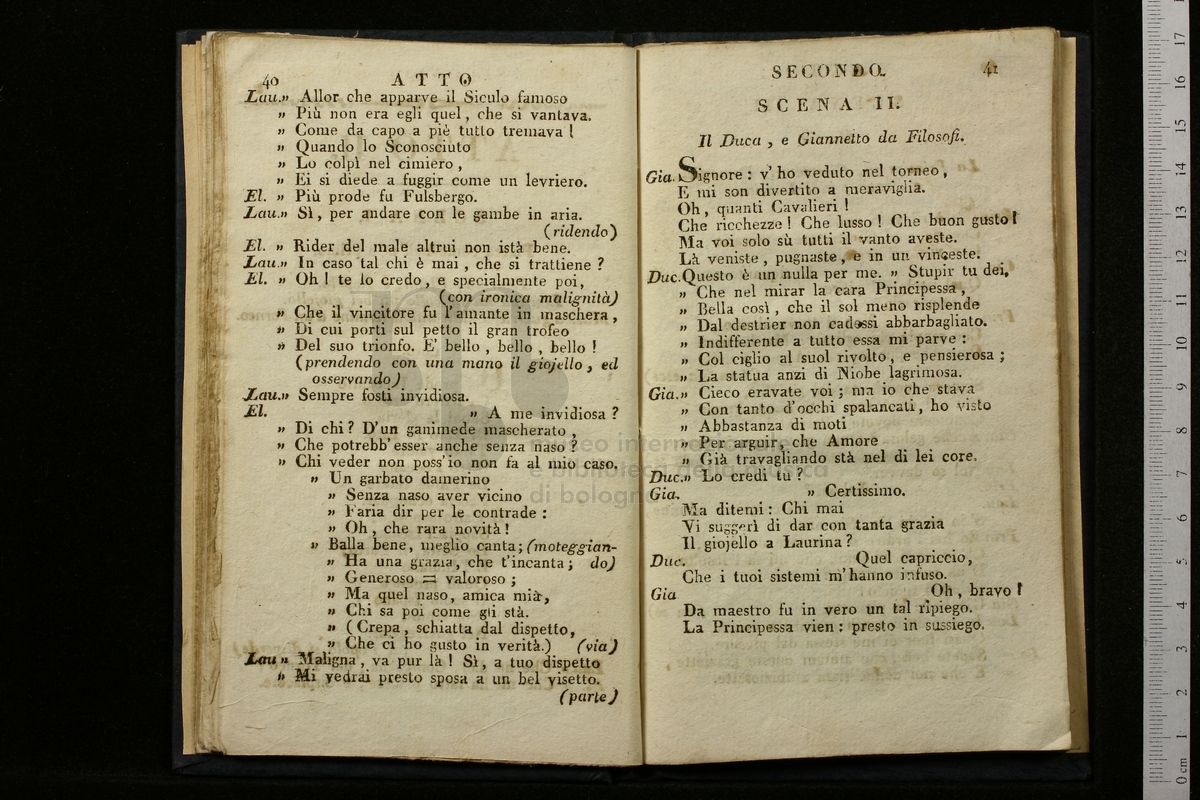 40 ATTO
Lau.» Allor che apparve il Siculo famoso
» Più non era egli quel, che si vantava.
» Come da capo a piè tutto tremava!
» Quando lo Sconosciuto
» Lo colpì nel cimiero,
» Ei si diede a fuggir come un levriero.
El. » Più prode fu Fulsbergo.
Lau.» Sì, per andare con le gambe in aria.
(ridendo)
El. » Rider del male altrui non istà bene.
Lau.» In caso tal chi è mai, che si trattiene?
El. » Oh! te lo credo, e specialmente poi,
(con ironica malignità)
» Che il vincitore fu l'amante in maschera,
» Di cui porti sul petto il gran trofeo
» Del suo trionfo. E' bello, bello, bello!
(prendendo con una mano il giojello, ed
osservando)
Lau.» Sempre fosti invidiosa.
El. » A me invidiosa?
» Di chi? D'un ganimede mascherato,
» Che potrebb'esser anche senza naso?
» Chi veder non poss'io non fa al mio caso.
» Un garbato damerino
» Senza naso aver vicino
» Faria dir per le contrade:
» Oh, che rara novità!
» Balla bene, meglio canta; (moteggian-
» Ha una grazia, che t'incanta; do)
» Generoso = valoroso;
» Ma quel naso, amica mia,
» Chi sa poi come gli stà.
» (Crepa, schiatta dal dispetto,
» Che ci ho gusto in verità.) (via)
Lau » Maligna, va pur là! Sì, a tuo dispetto
» Mi vedrai presto sposa a un bel visetto.
(parte)
SECONDO. 41
SCENA II.
Il Duca, e Giannetto da Filosofi.
Gia. Signore: v'ho veduto nel torneo,
E mi son divertito a meraviglia.
Oh, quanti Cavalieri!
Che ricchezze! Che lusso! Che buon gusto!
Ma voi solo sù tutti il vanto aveste.
Là veniste, pugnaste, e in un vinceste.
Duc. Questo è un nulla per me. » Stupir tu dei,
» Che nel mirar la cara Principessa,
» Bella così, che il sol meno risplende
» Dal destrier non cadessi abbarbagliato.
» Indifferente a tutto essa mi parve:
» Col ciglio al suol rivolto, e pensierosa;
» La statua anzi di Niobe lagrimosa.
Gia.» Cieco eravate voi; ma io che stava
» Con tanto d'occhi spalancati, ho visto
» Abbastanza di moti
» Per arguir, che Amore
» Già travagliando stà nel di lei core.
Duc.» Lo credi tu?
Gia. » Certissimo.
Ma ditemi: Chi mai
Vi suggerì di dar con tanta grazia
Il giojello a Laurina?
Duc. Quel capriccio,
Che i tuoi sistemi m'hanno infuso.
Gia Oh, bravo!
Da maestro fu in vero un tal ripiego.
La Principessa vien: presto in sussiego.
museo internazionale
e biblioteca della musica
di bologna